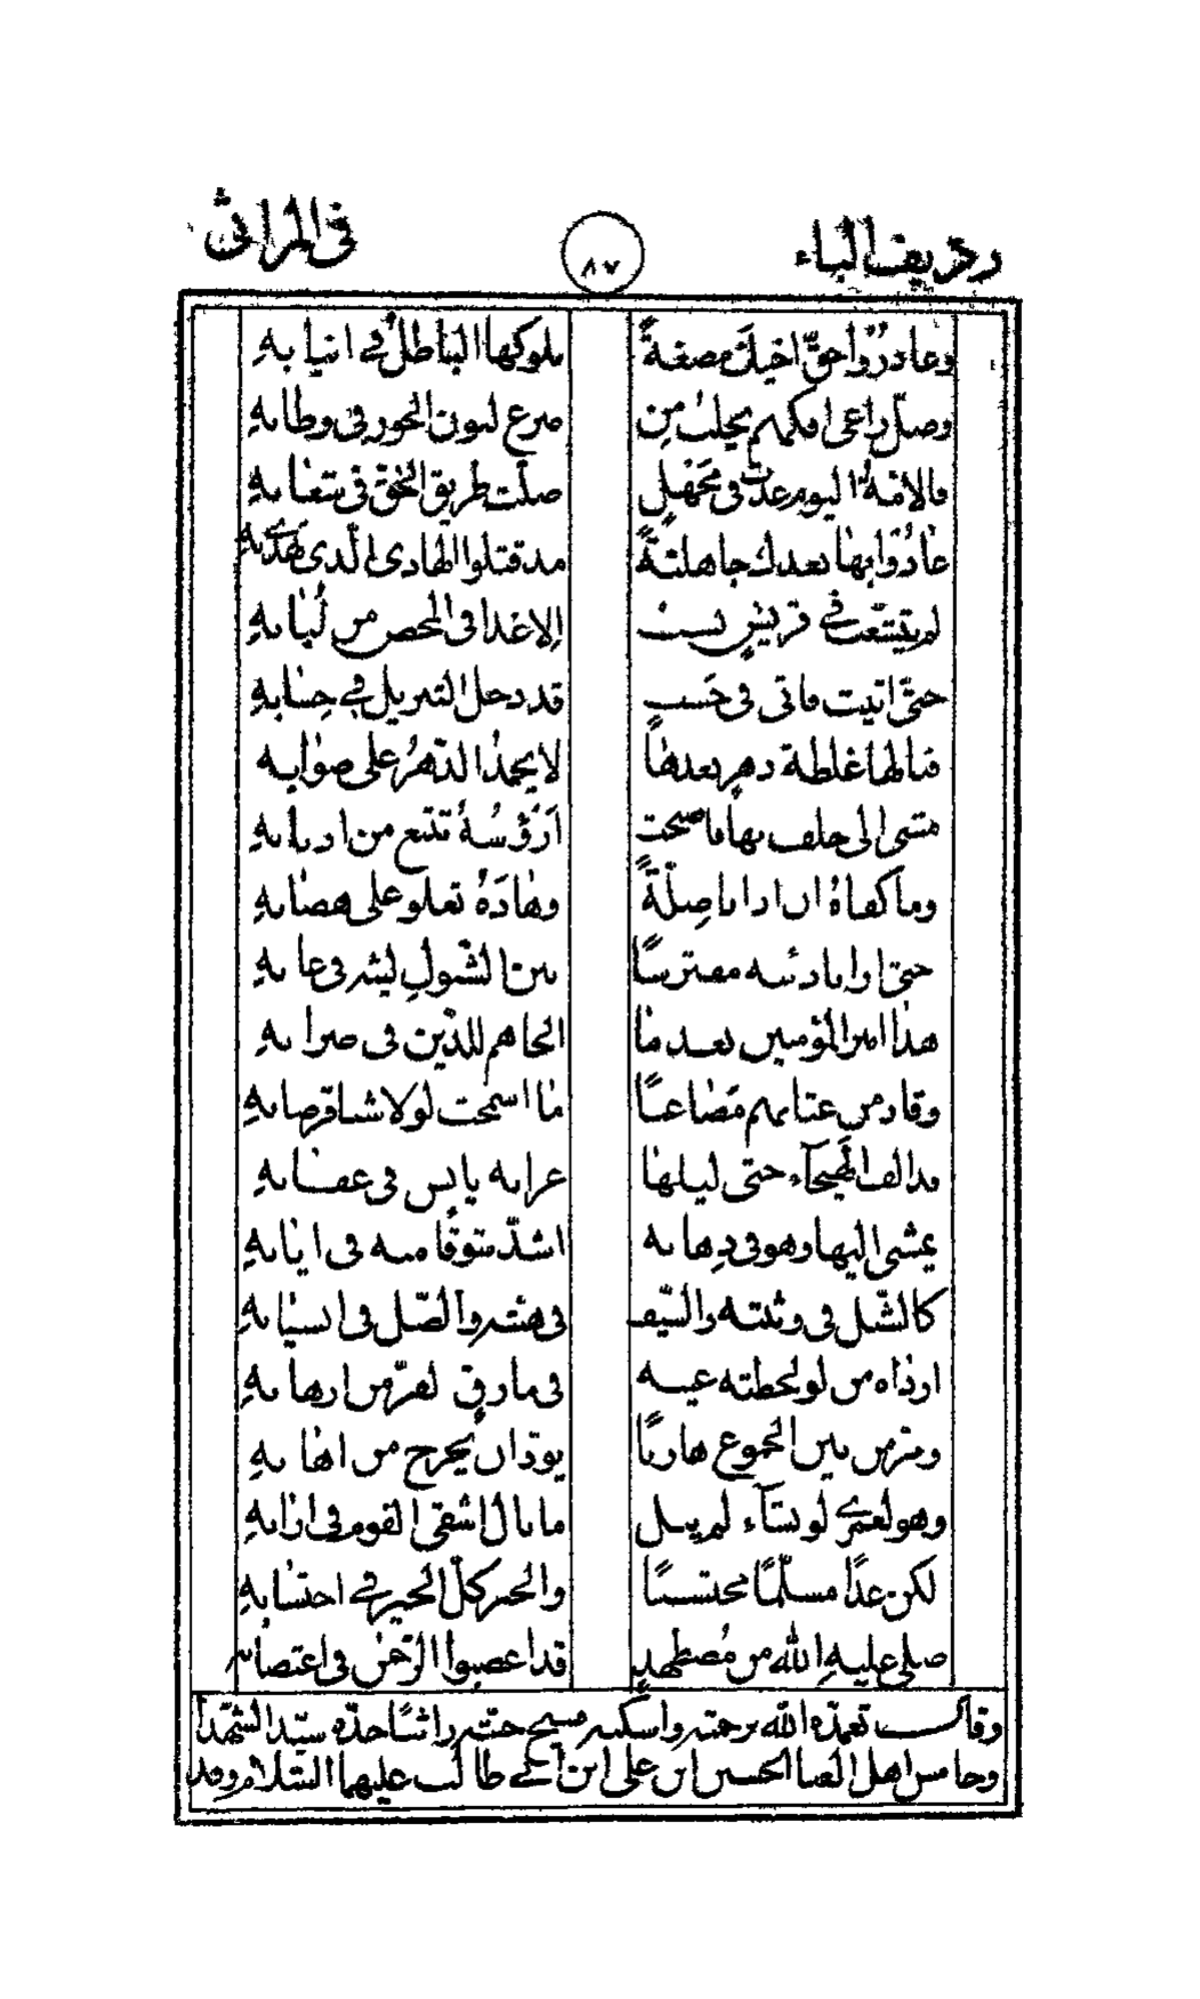 رديف الباء
٨٧
في المراثي
وغادروا حق اخيك مضغة يلوكها الباطل في انيابه
وصل راعي افكهم يحلب من ضرع لبون الجور في وطابه
فالامة اليوم غدت في مجهل ضلت طريق الحق في شعابه
عادوا بها بعدك جاهلية مذ قتلوا الهادي الذي تهدى به
لم يتشعب في قريش نسب الا غدا في المحض من لبابه
حتى اتيت فاتى في حسب قد دخل التنزيل في حسابه
فيا لها غلطة دهر بعدها لا يحمد الدهر على صوابه
مشى الى خلف بها فاصبحت ارؤسه تتبع من اذنابه
وما كفاه ان ارانا ضلة وهاده تعلو على هضابه
حتى ارانا ذئبه مفترسا بين الشبول ليثه في غابه
هذا امير المؤمنين بعد ما الجاهم للدين في ضرابه
وقاد من عتاتهم مصاعبا ما اسمحت لولا شبا قرضابه
قد الف الهيجاء حتى ليلها غرابه يانس في عقابه
يمشي اليها وهو في ذهابه اشد شوقا منه في ايابه
كالشبل في وثبته والسيف في هبته والصل في انسيابه
ارداه من لو لحظته عينه في مازق لفر من ارهابه
ومر من بين الجموع هاربا يود ان يخرج من اهابه
وهو لعمري لو يشاء لم ينل ما نال اشقى القوم في ارابه
لكن غدا مسلما محتسبا والخير كل الخير في احتسابه
صلى عليه الله من مضطهد قد اغضبوا الرحمن في اغتصابه
وقال تغمده الله برحمته واسكنه فسيح جنته راثيا جده سيد الشهدا
وخامس اهل العبا الحسين ابن علي ابن ابي طالب عليهما السلام وقد